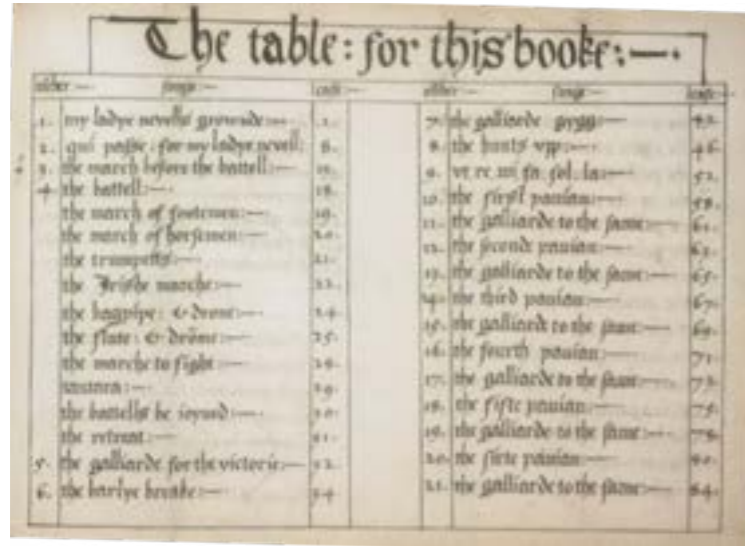 The table: for this booke:—.
songs
songs
1. my ladye nevells grownde:— 1.
2. qui passe: for my ladye nevell: 8.
3. the march before the battell:
4. the battell:— 18.
the march of footemen:— 19.
the march of horsemen:— 20.
the trumpetts:— 21.
the Irishe marche:— 22.
the bagpipe: & drone:— 24.
the flute: & drōme:— 25.
the marche to fight:— 26.
29.
the battells be ioyned:— 30.
the retreat:— 31.
5. the galliarde for the victorie:— 32.
6. the barlye breake:— 34.
7. the galliarde gygg:— 43.
8. the hunts vpp:— 46.
9. vt. re. mi. fa. sol. la:— 52.
10. the first pavian:— 58.
11. the galliarde to the same:— 61.
12. the seconde pavian:— 63.
13. the galliarde to the same:— 65.
14. the third pavian:— 67.
15. the galliarde to the same:— 69.
16. the fourth pavian:— 71.
17. the galliarde to the same:— 73.
18. the fifte pavian:— 75.
19. the galliarde to the same:— 78.
20. the sixte pavian:— 80.
21. the galliarde to the same:— 84.